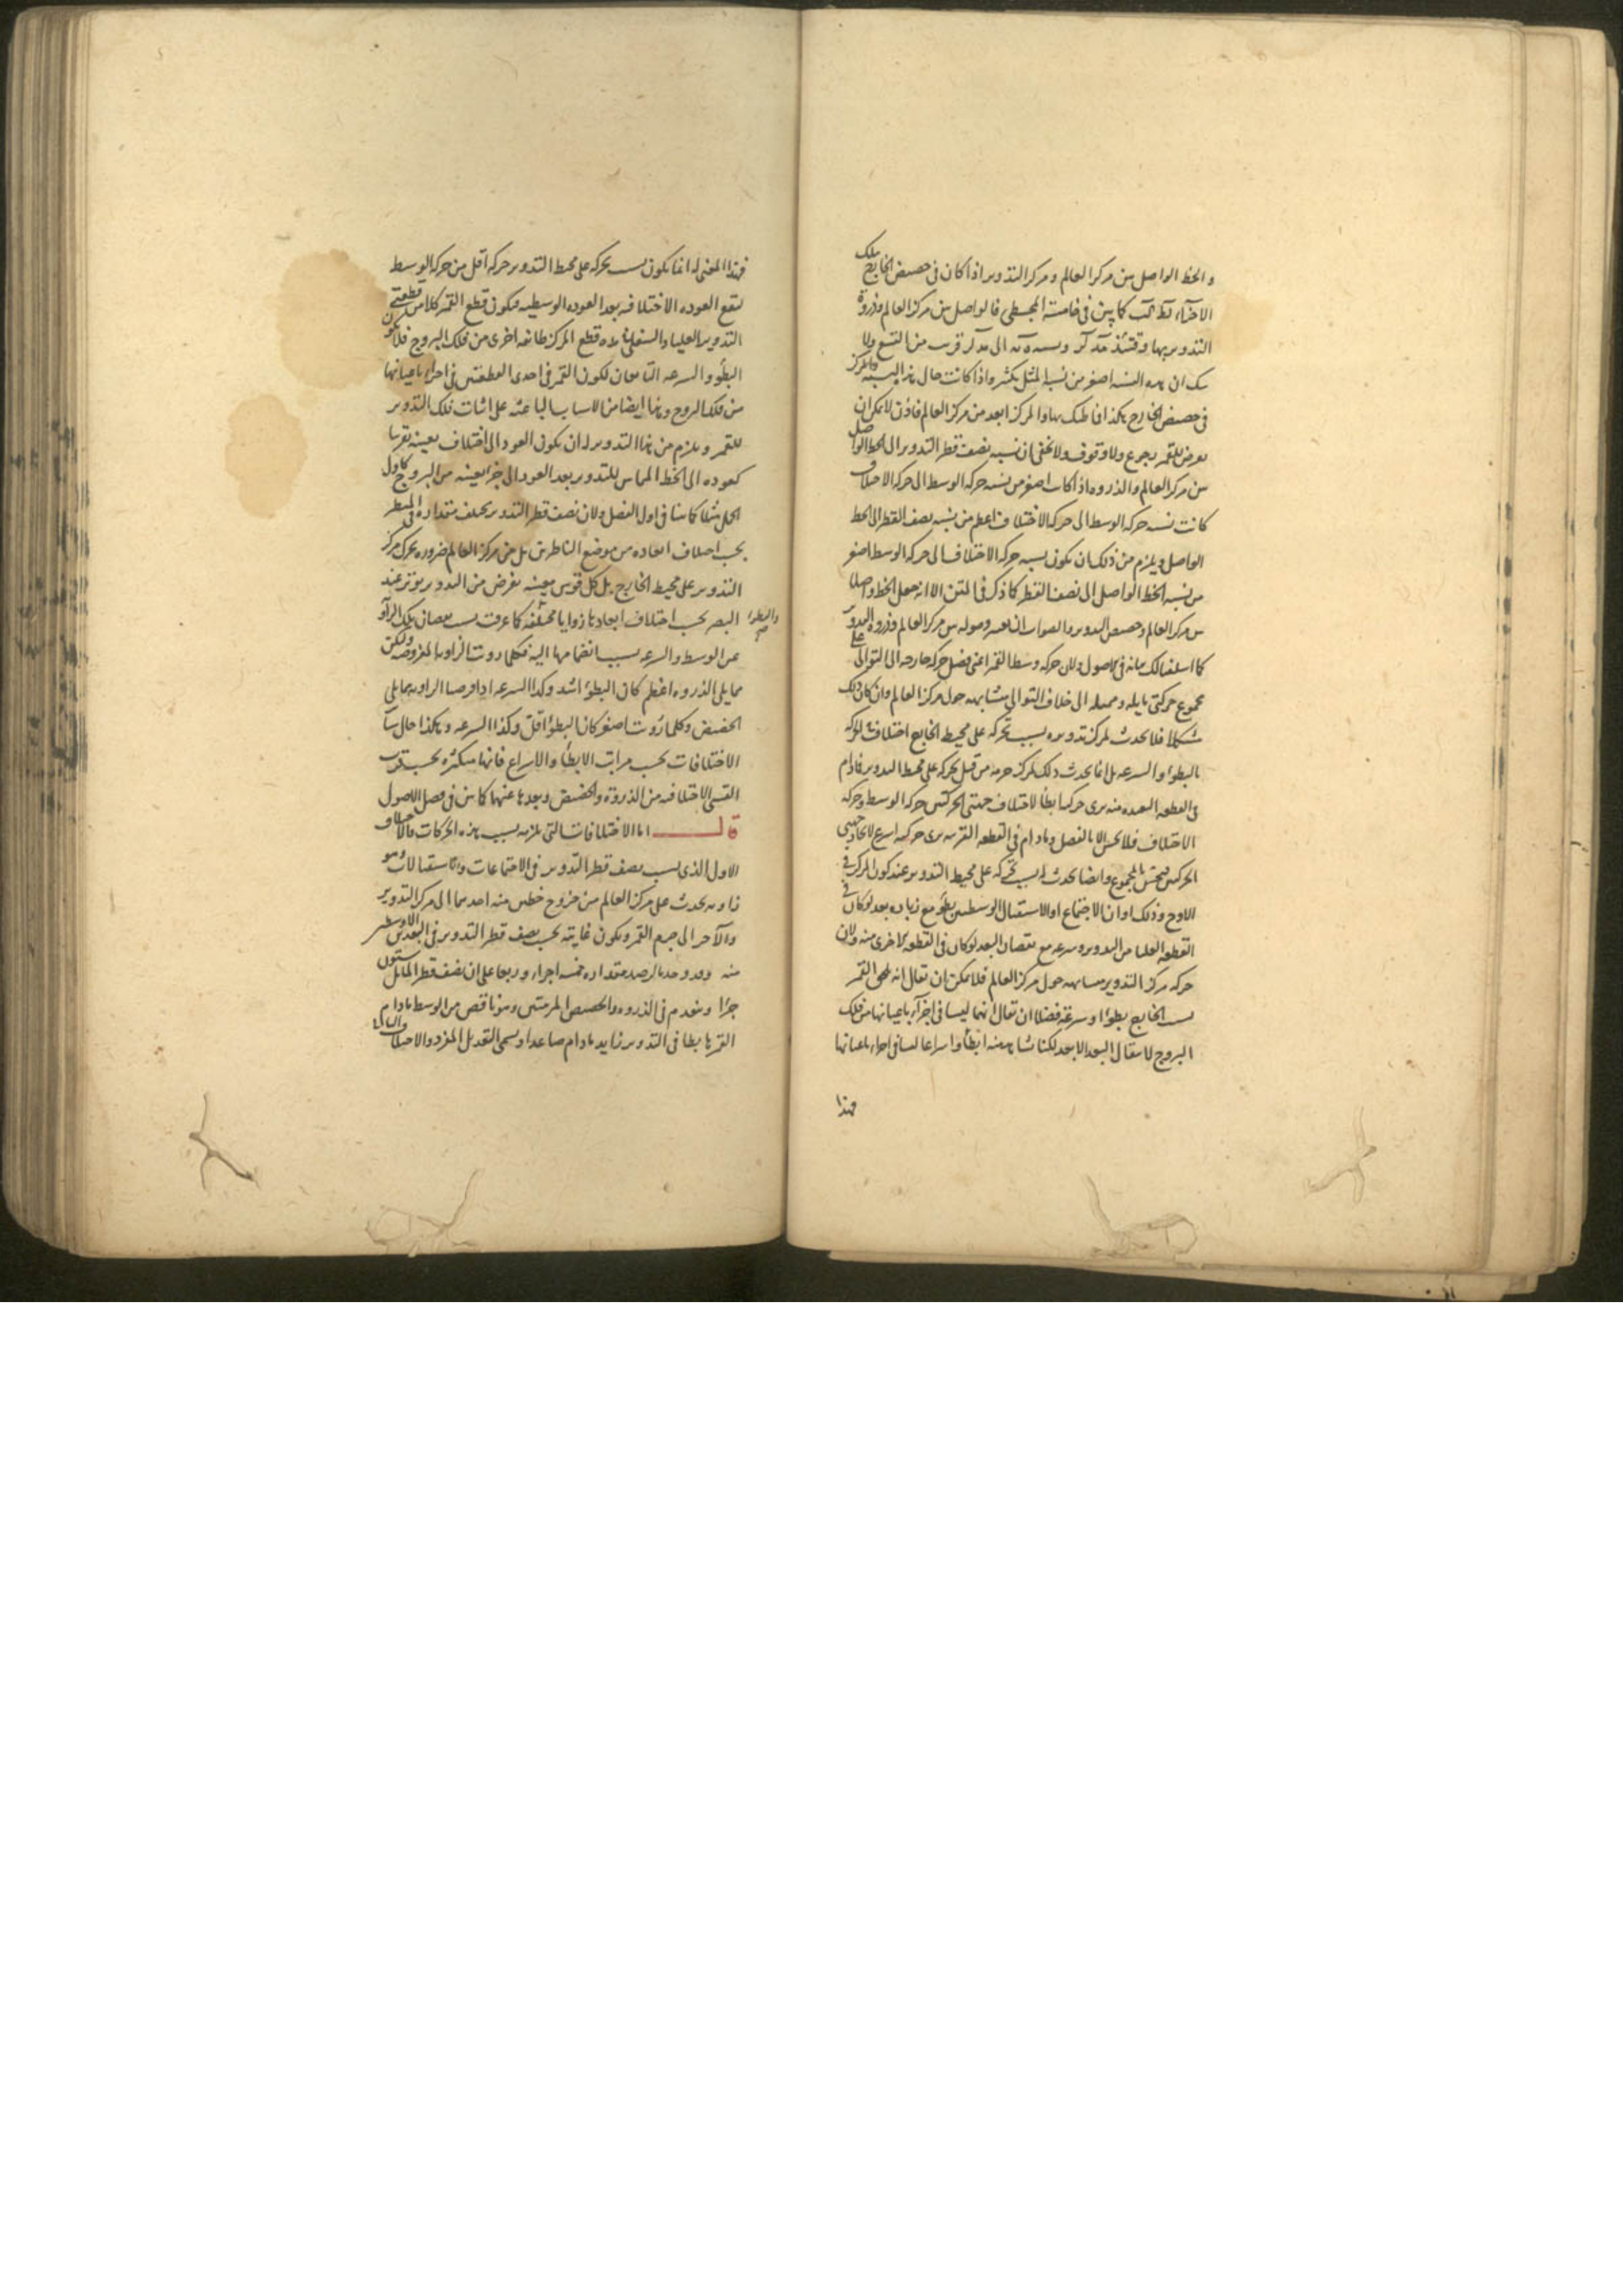 والخط الواصل بين مركز العالم ومركز التدوير اذا كان في حضيض الخارج بتلك
الاجزاء لط كب كما بين في خامسة المجسطي فالواصل بين مركز العالم وذروة
التدوير بها وقتئذ مد لر ونسبة الى مد لر قريب من التسع ولا
شك ان هذه النسبة اصغر من نسبة المثل بكثير واذا كانت حال هذا النسبة والمركز
في حضيض الخارج هكذا فما ظنك بها والمركز ابعد من مركز العالم فاذن لا يمكن ان
يعرض للقمر رجوع ولا وقوف ولا يخفى ان نسبة نصف قطر التدوير الى الخط الواصل
بين مركز العالم والذروة اذا كانت اصغر من نسبة حركة الوسط الى حركة الاختلاف
كانت نسبة حركة الوسط الى حركة الاختلاف اعظم من نسبة نصف القطر الى الخط
الواصل ويلزم من ذلك ان يكون نسبة حركة الاختلاف الى حركة الوسط اصغر
من نسبة الخط الواصل الى نصف القطر كما ذكر في المتن الا انه جعل الخط واصلا
بين مركز العالم وحضيض التدوير والصواب ان وصوله بين مركز العالم وذروة التدوير
كما اسلفنا لك بيانه في الاصول ولان حركة وسط القمر اعني فضل حركة خارجه الى التوالي على
مجموع حركتي مايله وممثله الى خلاف التوالي متشابهة حول مركز العالم وان كان ذلك
مشكلا فلا يحدث لمركز تدويره بسبب تحركه على محيط الخارج اختلاف في الحركة
بالبطؤ او السرعة بل انما يحدث ذلك لمركز جرمه من قبل تحركه على محيط التدوير فما دام
في القطعة البعيدة منه يرى حركته ابطأ لاختلاف جهتي الحركتين حركة الوسط وحركة
الاختلاف فلا يحس الا بالفصل وما دام في القطعة القريبة يرى حركته اسرع لاتحاد جهتي
الحركتين فيحس بالمجموع وايضا يحدث له بسبب تحركه على محيط التدوير عند كون المركز في
الاوج وذلك اوان الاجتماع او الاستقبال الوسطيين بطؤ مع زيادة بعد لو كان في
القطعة العليا من التدوير وسرعة مع نقصان البعد لو كان في القطعة الاخرى منه ولان
حركة مركز التدوير متشابهة حول مركز العالم فلا يمكن ان يقال انه يلحق القمر
بسبب الخارج بطؤ او سرعة فضلا ان يقال انهما ليسا في اجزاء باعيانها من فلك
البروج لانتقال البعد الابعد لكننا نشاهد منه ابطاء واسراعا ليسا في اجزاء باعيانها
فهذا
فهذا المعنى له انما يكون بسبب تحركه على محيط التدوير حركة اقل من حركة الوسط
لتقع العودة الاختلافية بعد العودة الوسطية فيكون قطع القمر كلا من قطعتي
التدوير العليا والسفلى في مدة قطع المركز طائفة اخرى من فلك البروج فلا يكون
البطؤ والسرعة التابعان لكون القمر في احدى القطعتين في اجزاء باعيانها
من فلك البروج وهذا ايضا من الاسباب الباعثة على اثبات فلك التدوير
للقمر ويلزم من هذا التدوير له ان يكون العود الى اختلاف بعينه تقريبا
كعوده الى الخط المماس للتدوير بعد العود الى جزء بعينه من البروج كاول
الحمل مثلا كما بينا في اول الفصل ولان نصف قطر التدوير يختلف مقداره في المنظر
بحسب اختلاف ابعاده من موضع الناظرين بل من مركز العالم ضرورة تحرك مركز
التدوير على محيط الخارج بل كل قوس معينة تفرض من التدوير يوتر عند
البصر بحسب اختلاف ابعادها زوايا مختلفة كما عرفت بسبب نقصان تلك الزوايا
عن الوسط والسرعة بسبب انضمامها اليه فكلما رؤيت الزاوية المفروضة ولكن
مما يلي الذروة اعظم كان البطؤ اشد وكذا السرعة اذا فرضنا الزاوية مما يلي
الحضيض وكلما رؤيت اصغر كان البطؤ اقل وكذا السرعة وهكذا حال سائر
الاختلافات بحسب مراتب الابطاء والاسراع فانها متكثرة بحسب قرب
القسي الاختلافية من الذروة والحضيض وبعدها عنهما كما بين في فصل الاصول
قال اما الاختلافات التي تلزمه بسبب هذه الحركات فالاختلاف
الاول الذي بسبب نصف قطر التدوير في الاجتماعات والاستقبالات وهو
زاوية تحدث على مركز العالم من خروج خطين منه احدهما الى مركز التدوير
والآخر الى جرم القمر ويكون غايته بحسب نصف قطر التدوير في البعد الاوسط
منه وقد وجد بالرصد مقداره خمسة اجزاء وربعا على ان نصف قطر المايل ستون
جزءا وينعدم في الذروة والحضيض المرئيتين وهو ناقص من الوسط ما دام
القمر هابطا في التدوير زايد ما دام صاعدا ويسمى التعديل المفرد والاختلاف الثاني